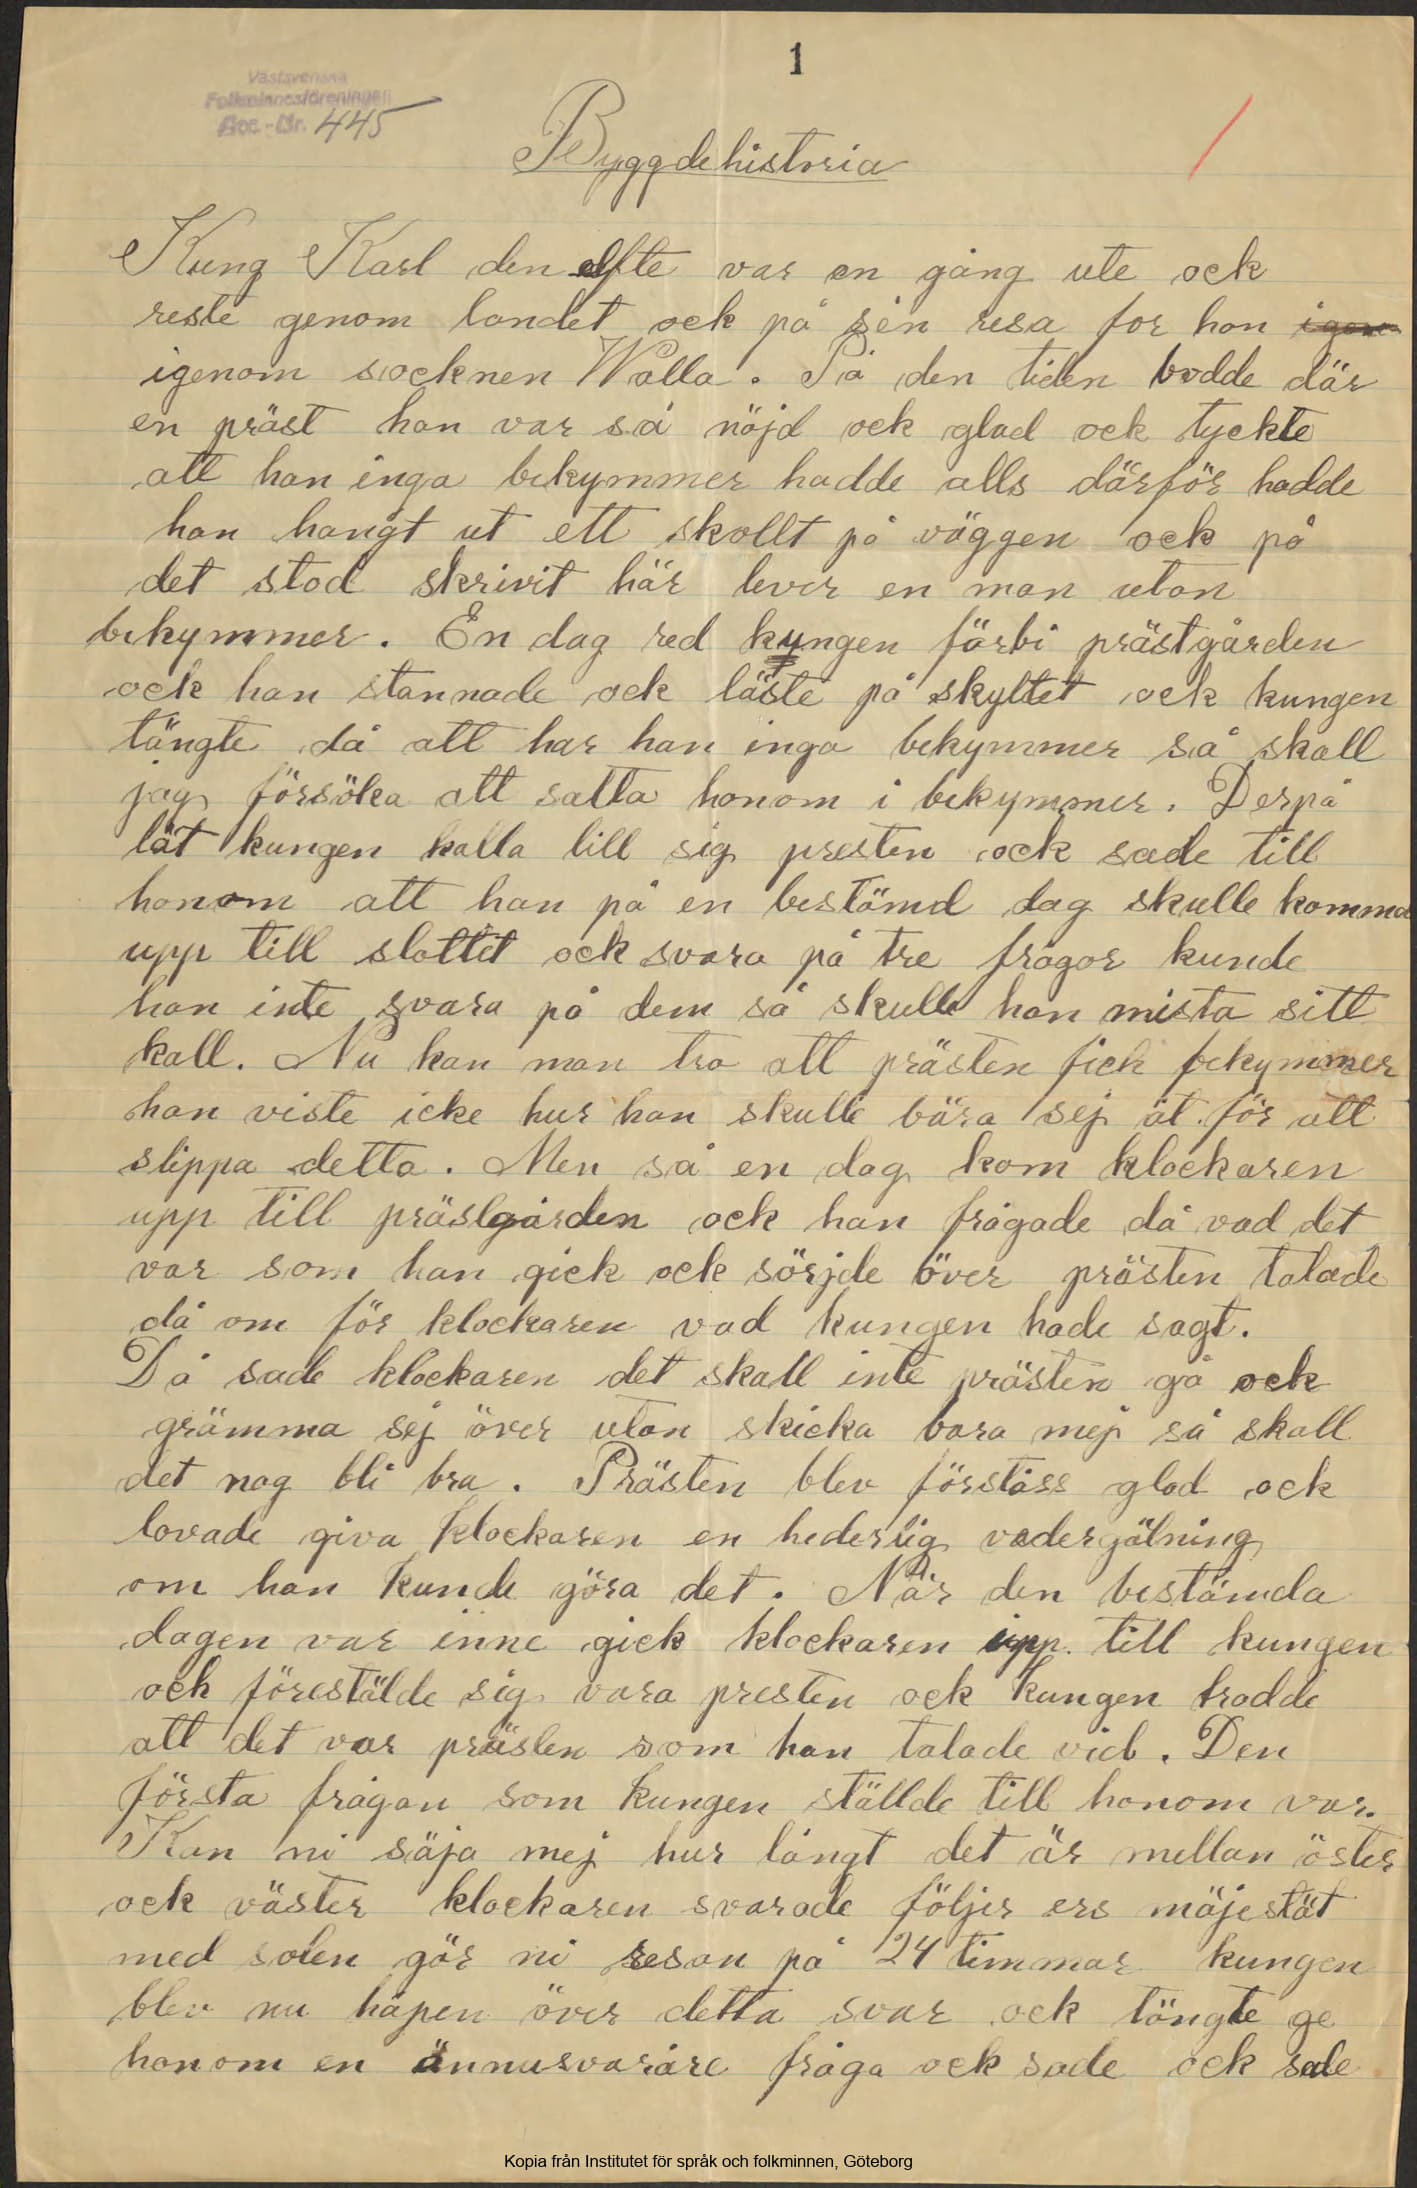 1
Västsvenska
Folkminnesföreningen
Acc.-Nr. 445
Byggdehistoria
Kung Karl den elfte var en gång ute ock
reste genom landet ock på sin resa for han igen
igenom socknen Walla. På den tiden bodde där
en präst han var så nöjd ock glad ock tyckte
att han inga bekymmer hadde alls därför hadde
han hangt ut ett skollt på väggen ock på
det stod skrivit här lever en man utan
bekymmer. En dag red kungen förbi prästgården
ock han stannade ock läste på skyltet ock kungen
tängte då att har han inga bekymmer så skall
jag försöka att satta honom i bekymmer. Derpå
lät kungen kalla till sig presten ock sade till
honom att han på en bestämd dag skulle komma
upp till slottet ock svara på tre frågor kunde
han inte svara på dem så skulle han mista sitt
kall. Nu kan man tro att prästen fick bekymmer
han viste icke hur han skulle bära sej åt för att
slippa detta. Men så en dag kom klockaren
upp till prästgården ock han frågade då vad det
var som han gick ock sörjde över prästen talade
då om för klockaren vad kungen hade sagt.
Då sade klockaren det skall inte prästen gå ock
grämma sej över utan skicka bara mej så skall
det nog bli bra. Prästen blev förståss glad ock
lovade giva klockaren en hederlig vedergälning
om han kunde göra det. När den bestämda
dagen var inne gick klockaren upp till kungen
och förestälde sig vara presten ock kungen trodde
att det var prästen som han talade vid. Den
första frågan som kungen ställde till honom var.
Kan ni säja mej hur långt det är mellan öster
ock väster klockaren svarade följer ers mäjestät
med solen gör ni resan på 24 timmar kungen
blev nu häpen över detta svar ock tängte ge
honom en ännusvaråre fråga ock sade ock sade
Kopia från Institutet för språk och folkminnen, Göteborg